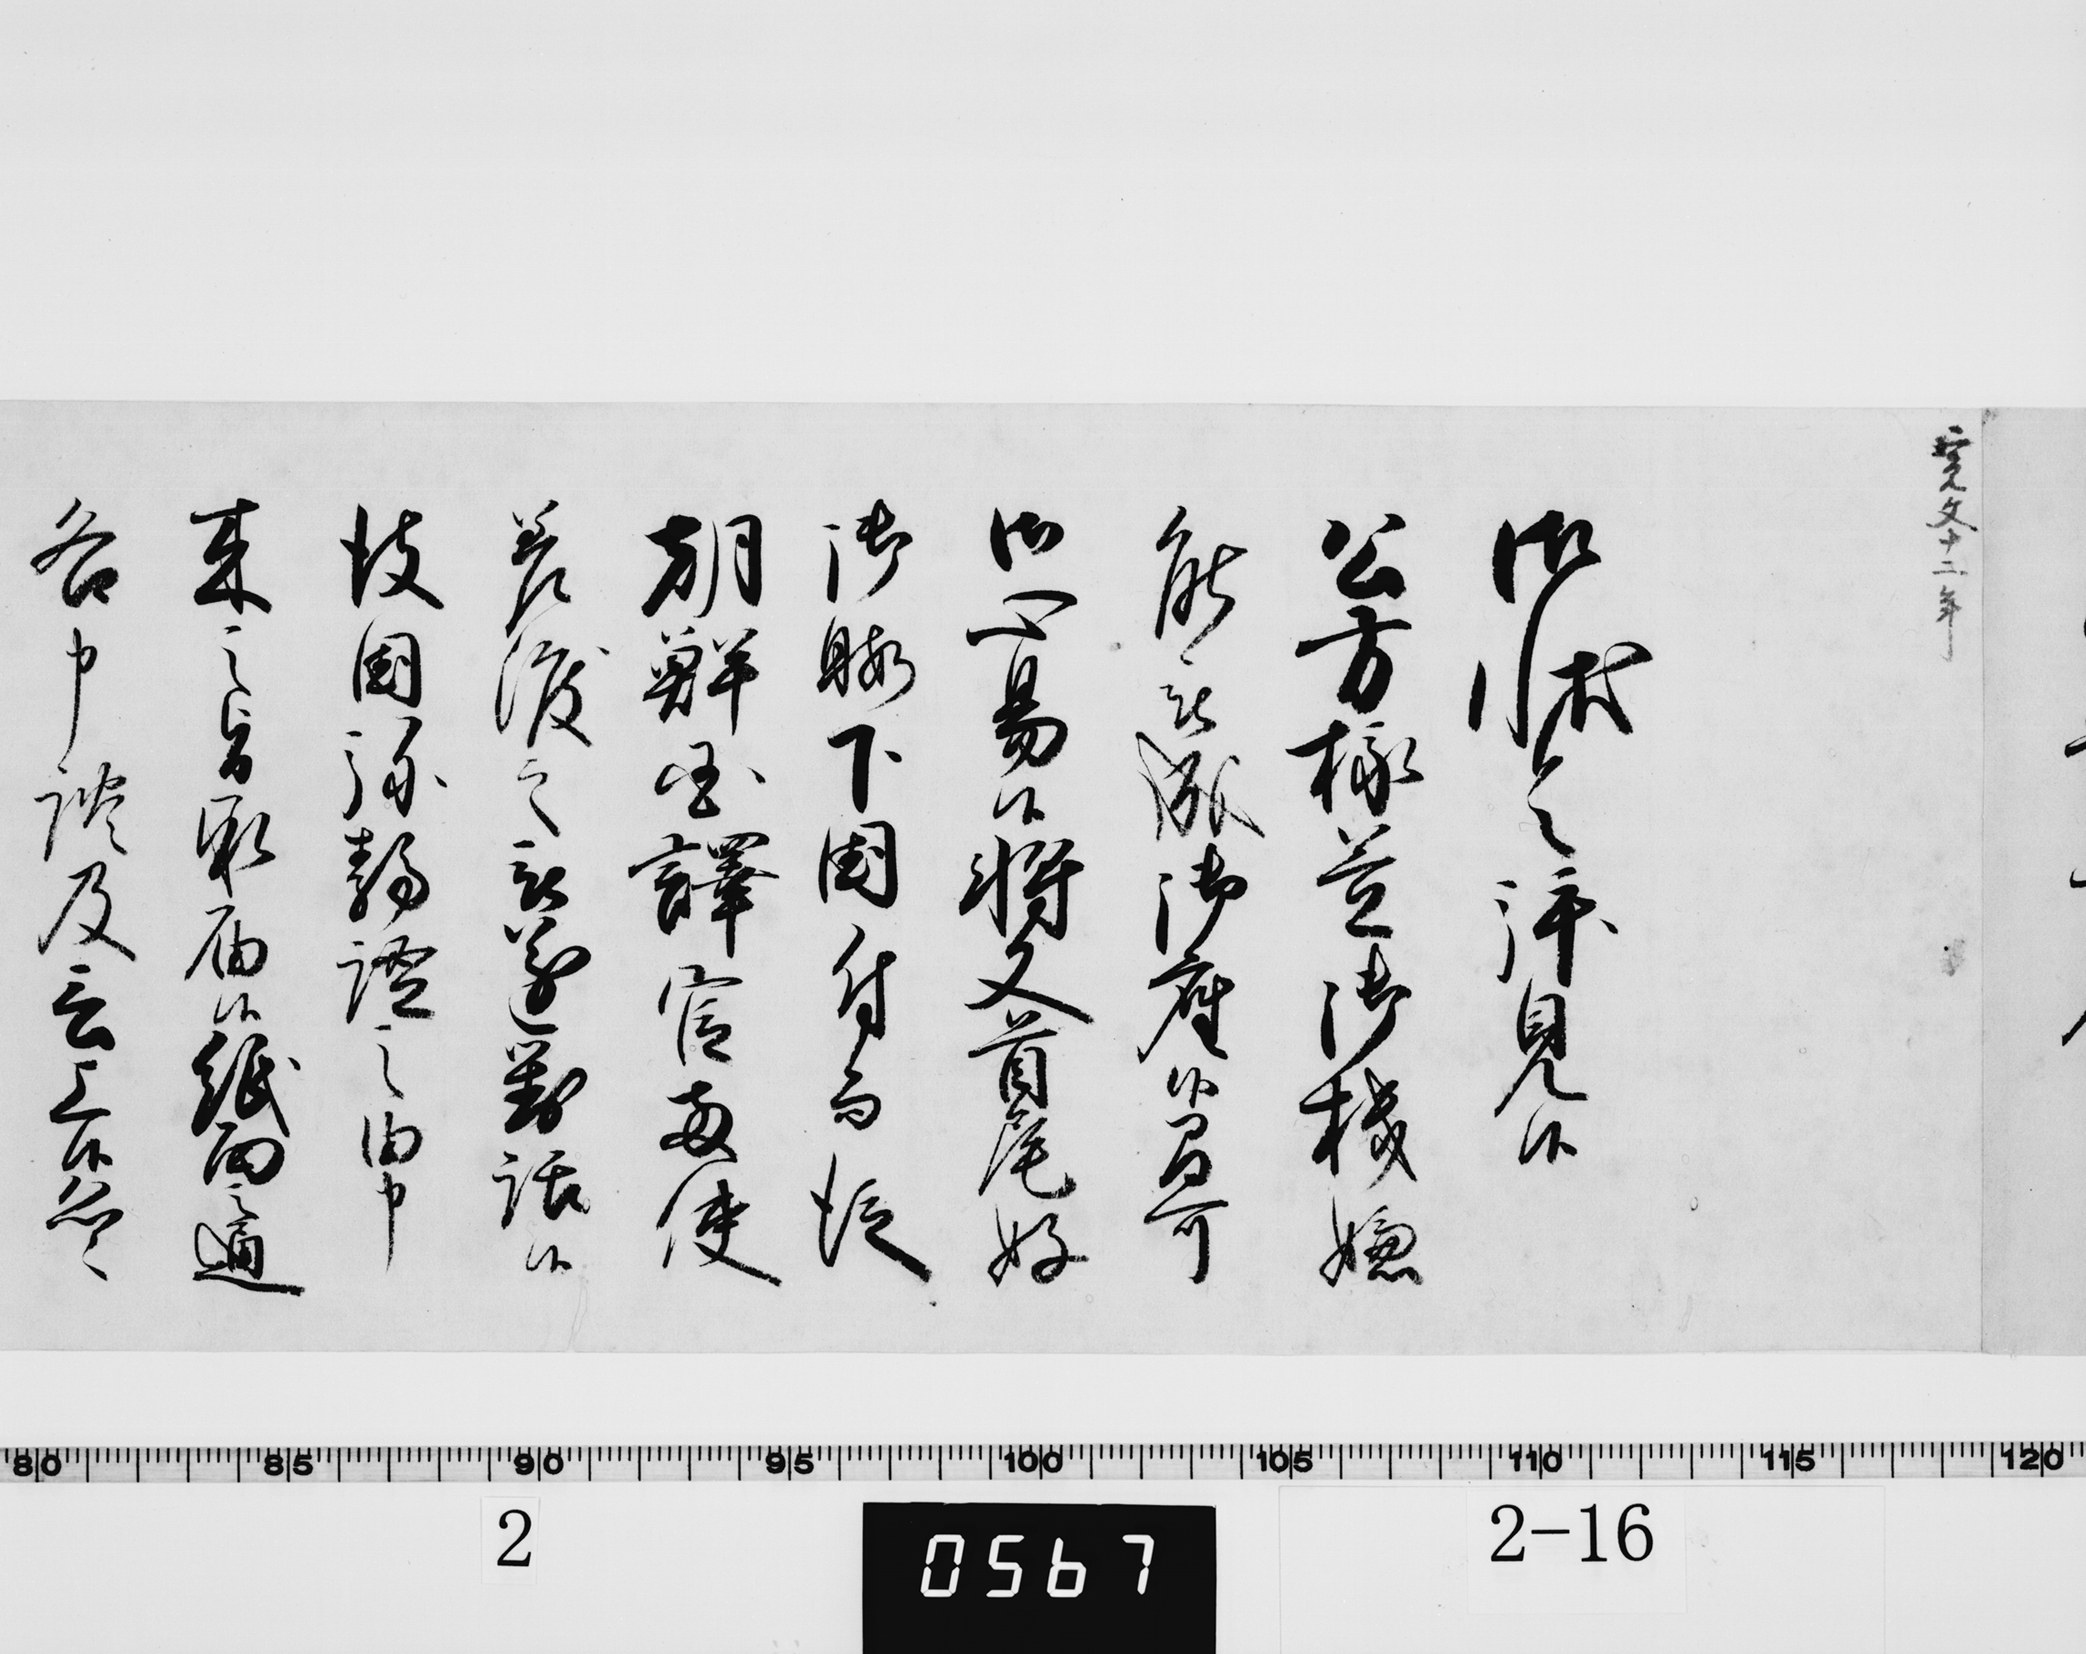 寛文十二年
御状令拝見候
公方様益御機嫌
能被成御座候間可
御心易候将又首尾好
御賜下国付而従
朝鮮国譯官両使
差渡之被遂對話候
彼国弥静謐之由申
来之旨承届候紙面之適
各申談及言上候恐々
80 85 90 95 100 105 110 115 120
2
0567
2-16